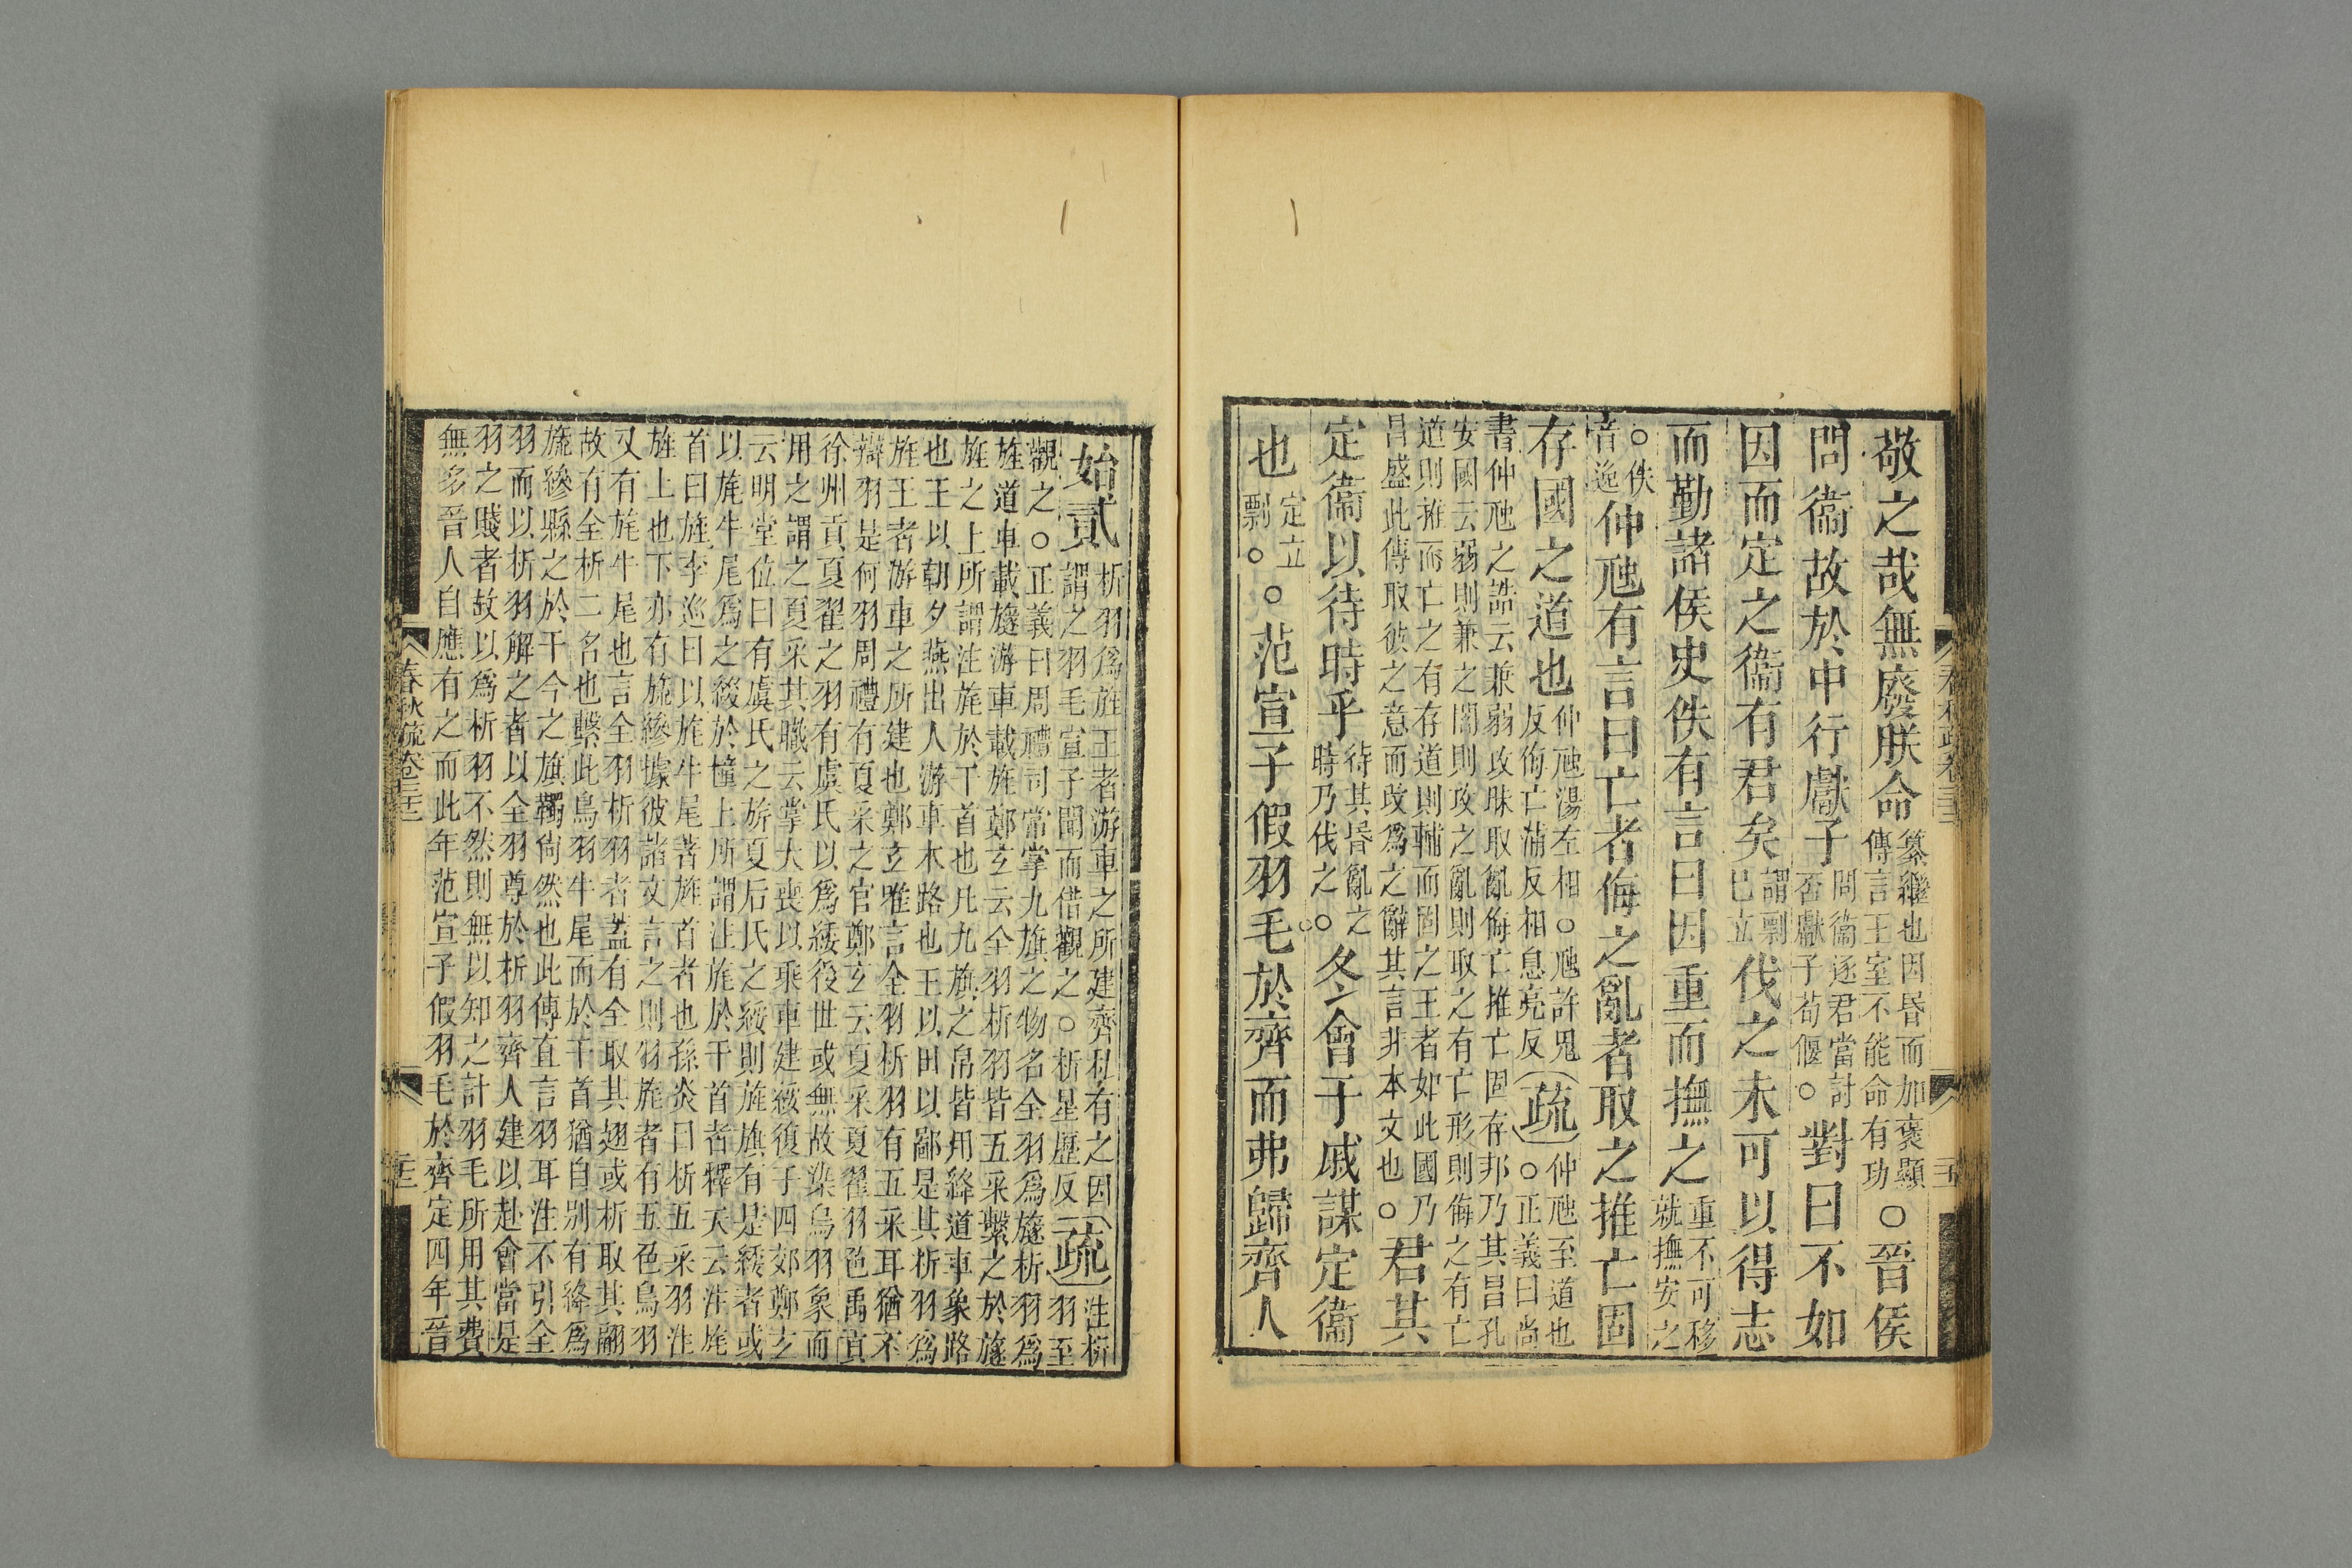 敬之哉無廢朕命纂繼也因昏而加褒顯傳言王室不能命有功○晉侯
問衞故於中行獻子問衞逐君當討否獻子荀偃○對曰不如
因而定之衞有君矣謂剽已立伐之未可以得志
而勤諸侯史佚有言曰因重而撫之重不可移就撫安之
○佚音逸仲虺有言曰亡者侮之亂者取之推亡固
存國之道也仲虺湯左相○虺許鬼反侮亡甫反相息亮反疏仲虺至道也○正義曰尚
書仲虺之誥云兼弱攻昧取亂侮亡推亡固存邦乃其昌孔
安國云弱則兼之闇則攻之亂則取之有亡形則侮之有亡
道則推而亡之有存道則輔而固之王者如此國乃
昌盛此傳取彼之意而改爲之辭其言非本文也○君其
定衞以待時乎待其昏亂之時乃伐之○冬會于戚謀定衞
也定立剽○○范宣子假羽毛於齊而弗歸齊人
始貳析羽爲旌王者游車之所建齊私有之因謂之羽毛宣子聞而借觀之○析星歷反疏注析羽至
觀之○正義曰周禮司常掌九旗之物名全羽爲旞析羽爲
旌道車載旞游車載旌鄭玄云全羽析羽皆五采繫之於旞
旌之上所謂注旄於干首也凡九旗之帛皆用絳道車象路
也王以朝夕燕出入游車木路也王以田以鄙是其析羽爲
旌王者游車之所建也鄭玄雖言全羽析羽有五采耳猶不
辯羽是何羽周禮有夏采之官鄭玄云夏采夏翟羽色禹貢
徐州貢夏翟之羽有虞氏以爲綏後世或無故染鳥羽象而
用之謂之夏采其職云掌大喪以乘車建綏復于四郊鄭玄
云明堂位曰有虞氏之旂夏后氏之綏則旌旗有是綏者或
以旄牛尾爲之綴於橦上所謂注旄於干首者釋天云注旄
首曰旌李巡曰以旄牛尾著旌首者也孫炎曰析五采羽注
旌上也下亦有旒縿據彼諸文言之則羽旄者有五色鳥羽
又有旄牛尾也言全羽析羽者蓋有全取其翅或析取其翮
故有全析二名也繫此鳥羽牛尾而於干首猶自別有絳爲
旒縿縣之於干今之旗韣尙然也此傳直言羽耳注不引全
羽而以析羽解之者以全羽尊於析羽齊人建以赴會當是
羽之賤者故以爲析羽不然則無以知之計羽毛所用其費
無多晉人自應有之而此年范宣子假羽毛於齊定四年晉
春秋疏卷三十二